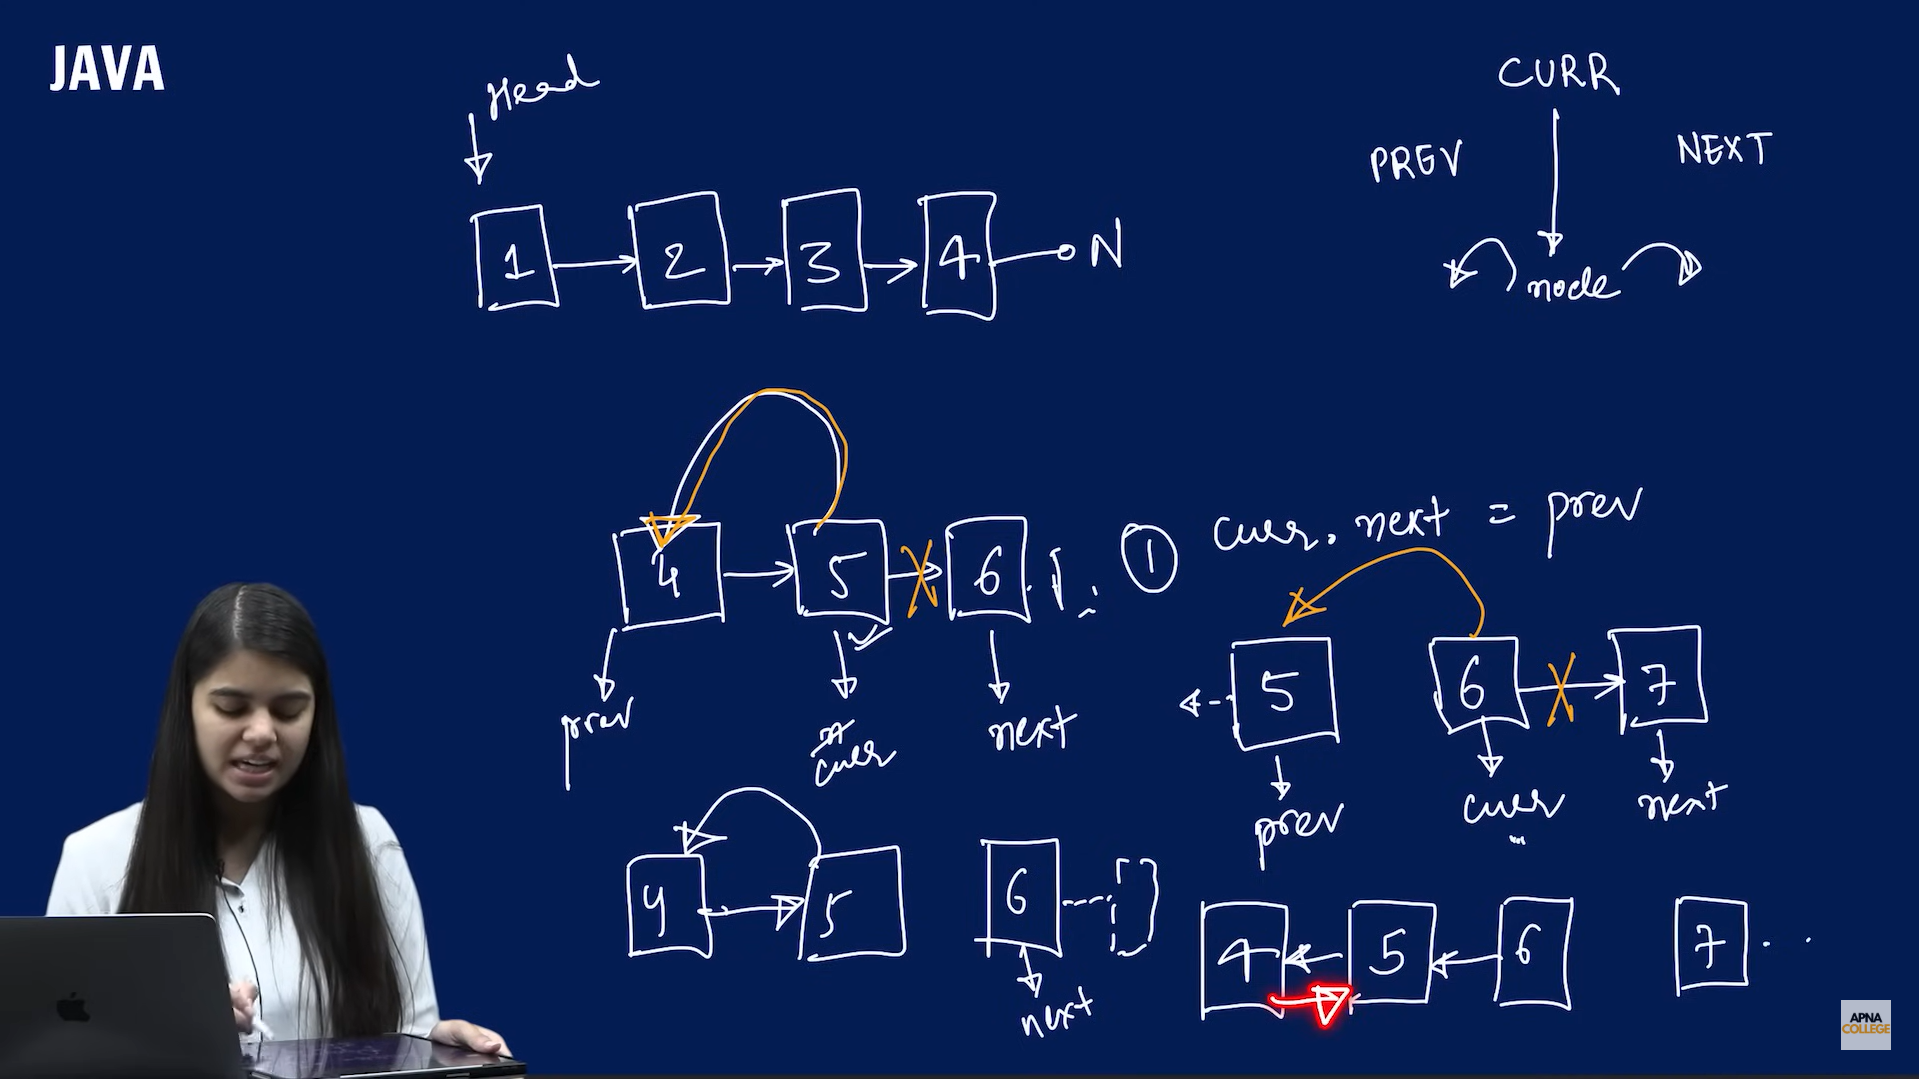 JAVA
Head
CURR
PREV
NEXT
node
1
2
3
4
N
4
5
6
1
curr. next = prev
prev
curr
next
5
6
7
prev
curr
next
4
5
6
next
4
5
6
7
APNA
COLLEGE